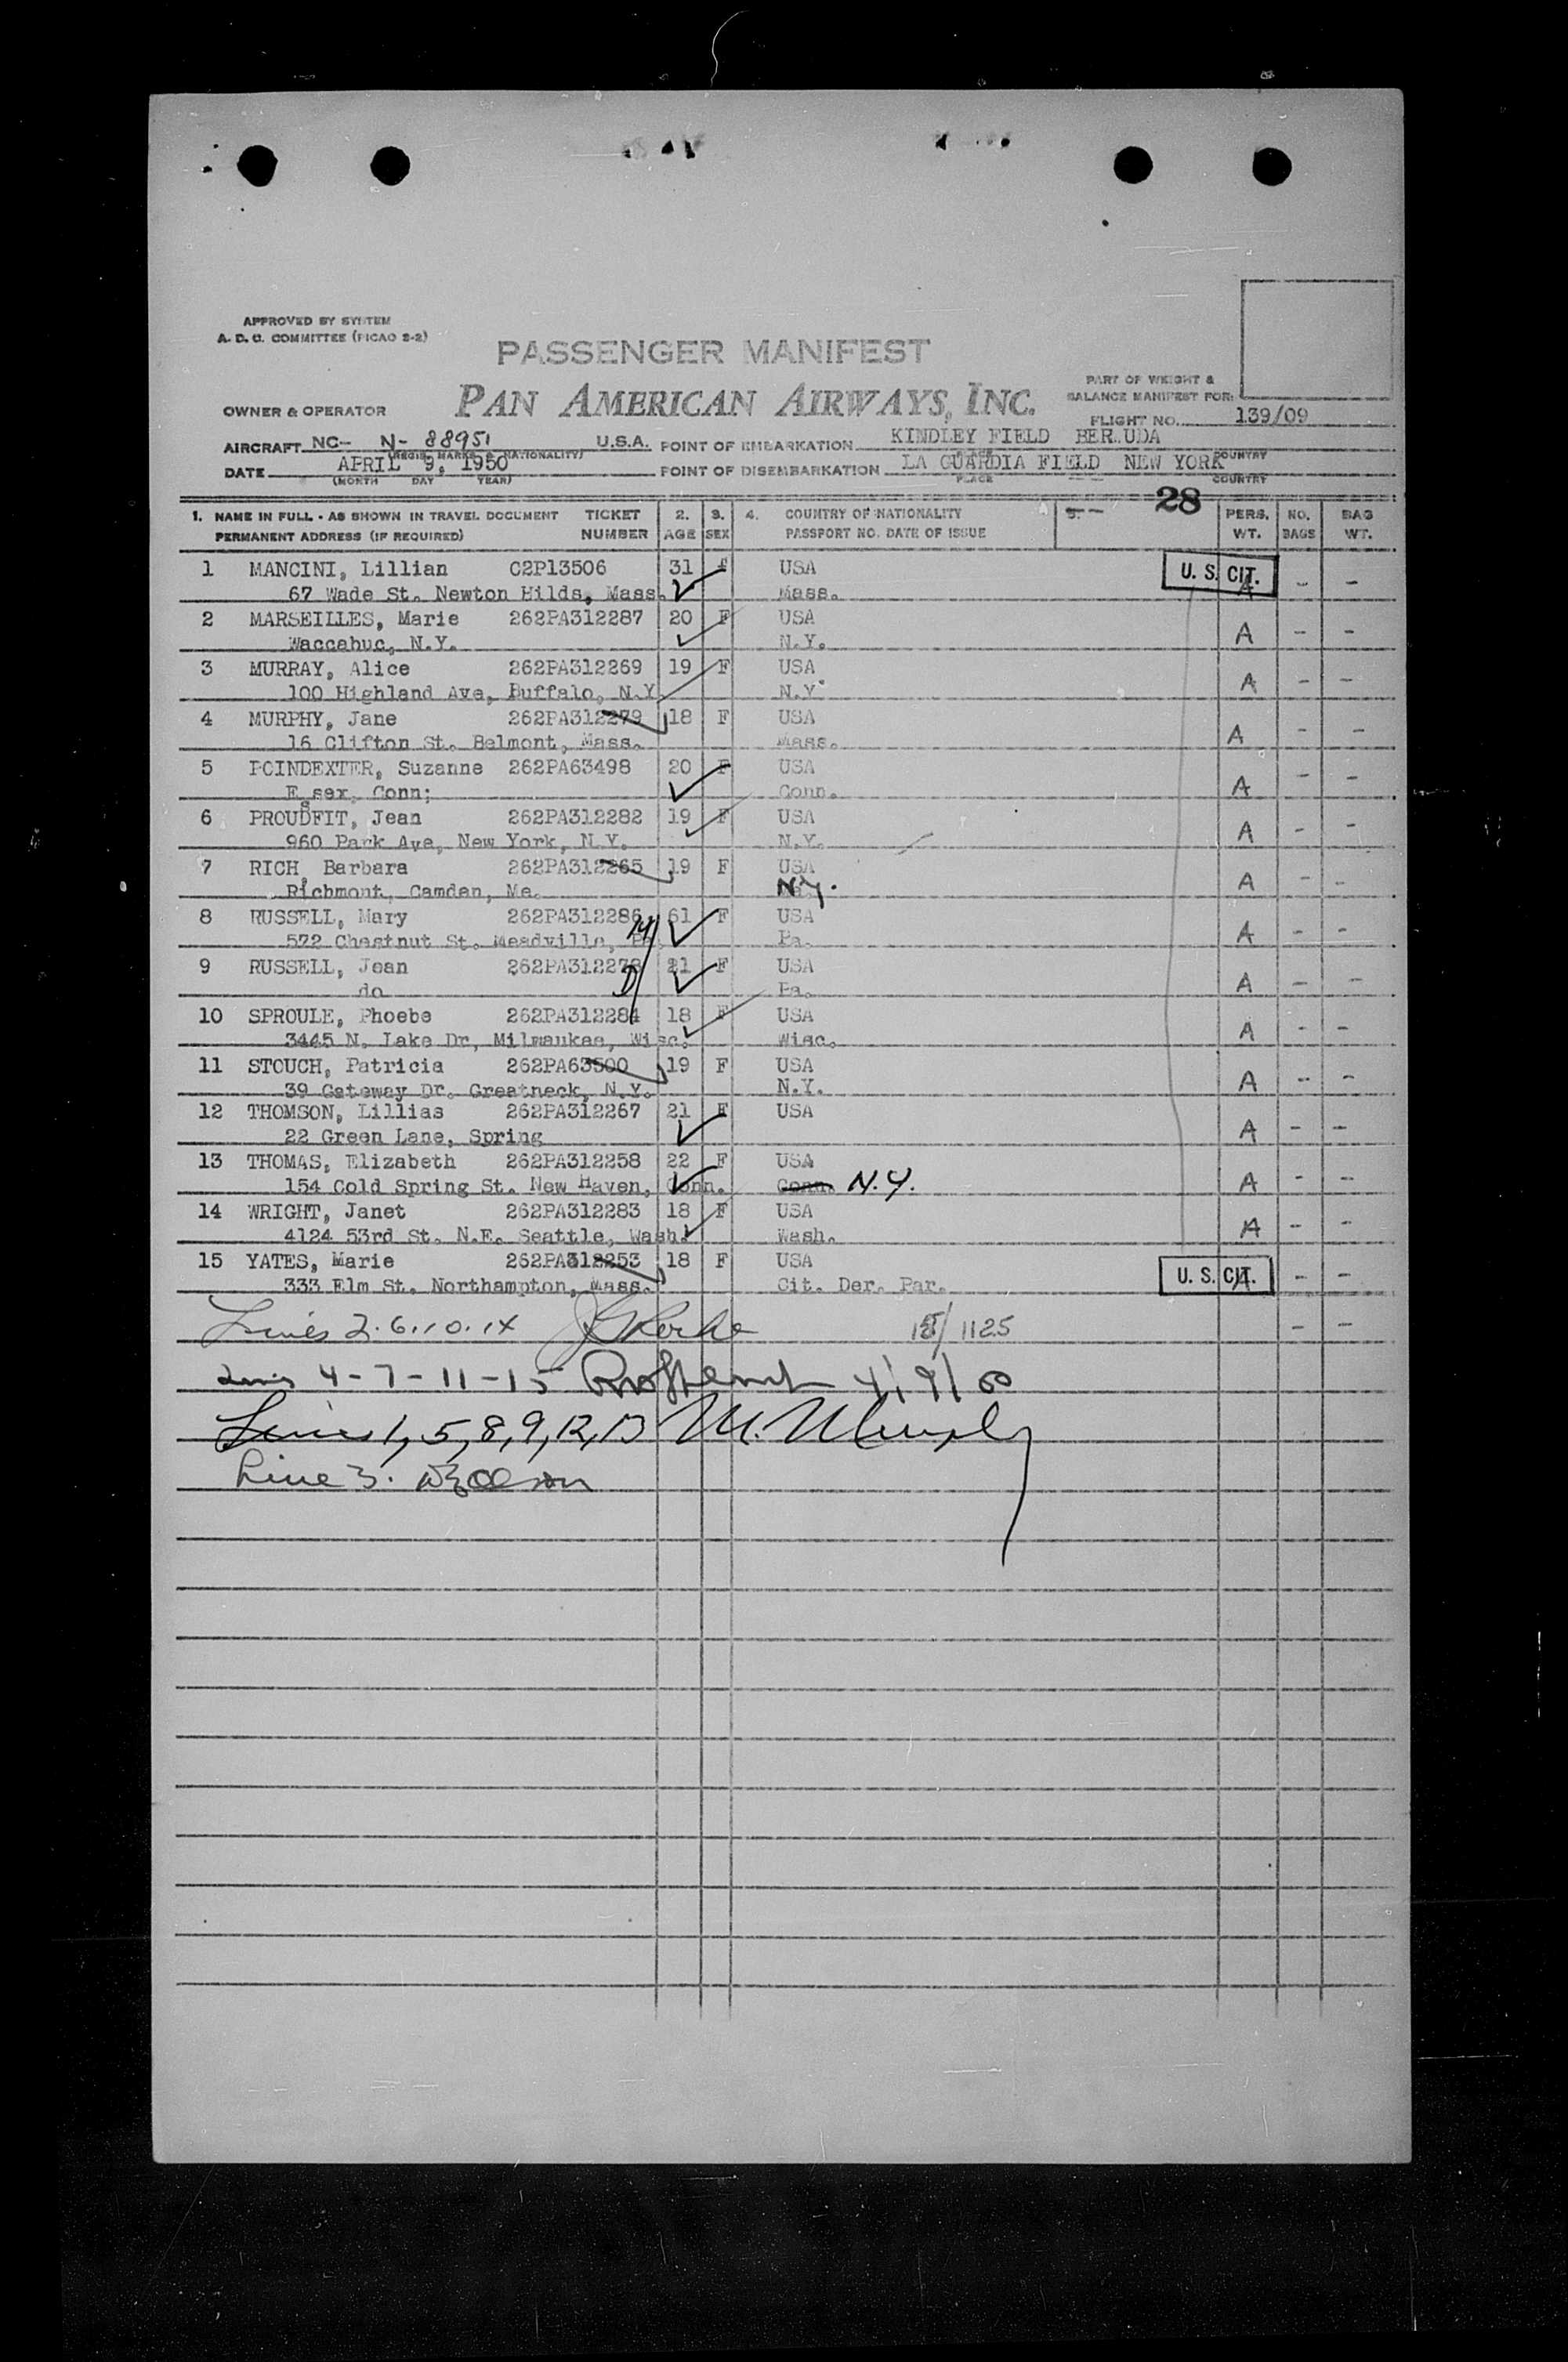 APPROVED BY SYSTEM
A. D. C. COMMITTEE (PICAO 2-2)
PASSENGER MANIFEST
PAN AMERICAN AIRWAYS, INC.
PART OF WEIGHT &
BALANCE MANIFEST FOR:
OWNER & OPERATOR
FLIGHT NO. 139/09
AIRCRAFT NC- N- 88951 U.S.A. POINT OF EMBARKATION KINDLEY FIELD BERMUDA
(REGIS. MARKS & NATIONALITY) COUNTRY
DATE APRIL 9, 1950 POINT OF DISEMBARKATION LA GUARDIA FIELD NEW YORK
(MONTH DAY YEAR) PLACE COUNTRY
28
1. NAME IN FULL - AS SHOWN IN TRAVEL DOCUMENT TICKET 2. 3. 4. COUNTRY OF NATIONALITY 5. PERS. NO. BAG
PERMANENT ADDRESS (IF REQUIRED) NUMBER AGE SEX PASSPORT NO. DATE OF ISSUE WT. BAGS WT.
1 MANCINI, Lillian C2P13506 31 F USA U. S. CIT. A - -
67 Wade St. Newton Hilds, Mass. Mass.
2 MARSEILLES, Marie 262PA312287 20 F USA
Waccabuc, N.Y. N.Y. A - -
3 MURRAY, Alice 262PA312269 19 F USA
100 Highland Ave, Buffalo, N.Y. N.Y. A - -
4 MURPHY, Jane 262PA312279 18 F USA
16 Clifton St. Belmont, Mass. Mass. A - -
5 POINDEXTER, Suzanne 262PA63498 20 F USA
Essex, Conn; Conn. A - -
6 PROUDFIT, Jean 262PA312282 19 F USA
960 Park Ave, New York, N.Y. N.Y. A - -
7 RICH, Barbara 262PA312265 19 F USA
Richmont, Camden, Me. N.Y. A - -
8 RUSSELL, Mary 262PA312286 61 F USA
572 Chestnut St. Meadville, Pa. M/ Pa. A - -
9 RUSSELL, Jean 262PA312278 21 F USA
do D Pa. A - -
10 SPROULE, Phoebe 262PA312284 18 F USA
3445 N. Lake Dr, Milwaukee, Wisc. Wisc. A - -
11 STOUCH, Patricia 262PA63500 19 F USA
39 Gateway Dr. Greatneck, N.Y. N.Y. A - -
12 THOMSON, Lillias 262PA312267 21 F USA
22 Green Lane, Spring A - -
13 THOMAS, Elizabeth 262PA312258 22 F USA
154 Cold Spring St. New Haven, Conn. Conn. N.Y. A - -
14 WRIGHT, Janet 262PA312283 18 F USA
4124 53rd St. N.E. Seattle, Wash. Wash. A - -
15 YATES, Marie 262PA312253 18 F USA
333 Elm St. Northampton, Mass. Cit. Der. Par. U. S. CIT. A - -
Lines 2. 6. 10. 14 15/1125 - -
Lines 4-7-11-15 4/9/50
Lines 1, 5, 8, 9, 12, 13 M. Murphy
Line 3.